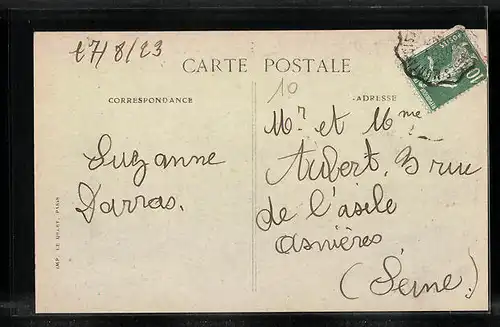 27/8/23
CARTE POSTALE
CORRESPONDANCE
ADRESSE
10
Suzanne
Darras.
Mr et Mme
Aubert. 3 rue
de l'asile
asnières
(Seine.)
IMP. LE DELEY, PARIS
10